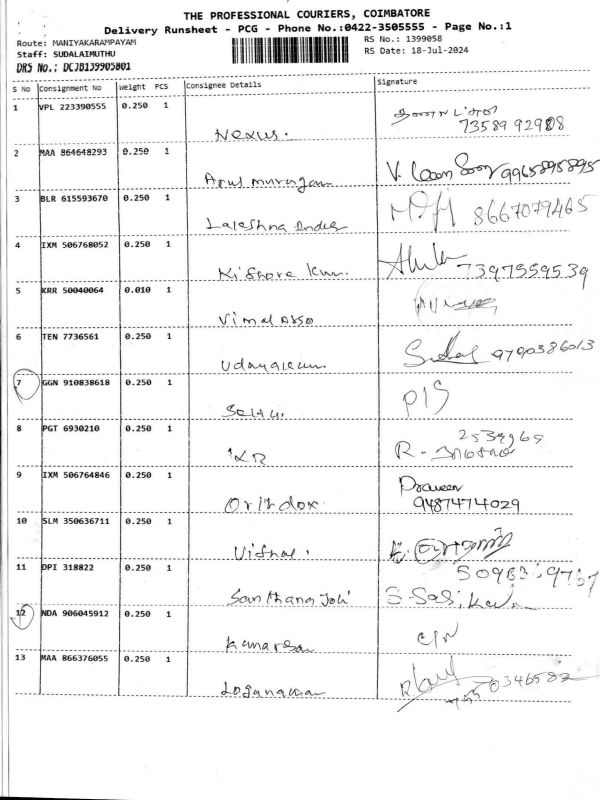 THE PROFESSIONAL COURIERS, COIMBATORE
Delivery Runsheet - PCG - Phone No.:0422-3505555 - Page No.:1
Route: MANIYAKARAMPAYAM
RS No.: 1399058
Staff: SUDALAIMUTHU
RS Date: 18-Jul-2024
DRS No.: DCJB139905801
S No Consignment No Weight PCS Consignee Details Signature
1 VPL 223390555 0.250 1
Nexus.
7358992908
2 MAA 864648293 0.250 1
Arul murugan
V. 9965895895
3 BLR 615593670 0.250 1
8667079465
4 IXM 506768052 0.250 1
Kishore Kum.
7397559539
5 KRR 50040064 0.010 1
Vimal Asso
6 TEN 7736561 0.250 1
Udayakum.
9790386013
7 GGN 910838618 0.250 1
Sethu.
P/S
8 PGT 6930210 0.250 1
R.
9 IXM 506764846 0.250 1
Orthdox
Praveen
9487474029
10 SLM 350636711 0.250 1
Vishal.
11 DPI 318822 0.250 1
Santhana Joli
S. Sasi Kala
12 NDA 906045912 0.250 1
Kanarsan
C/N
13 MAA 866376055 0.250 1
Loganathan